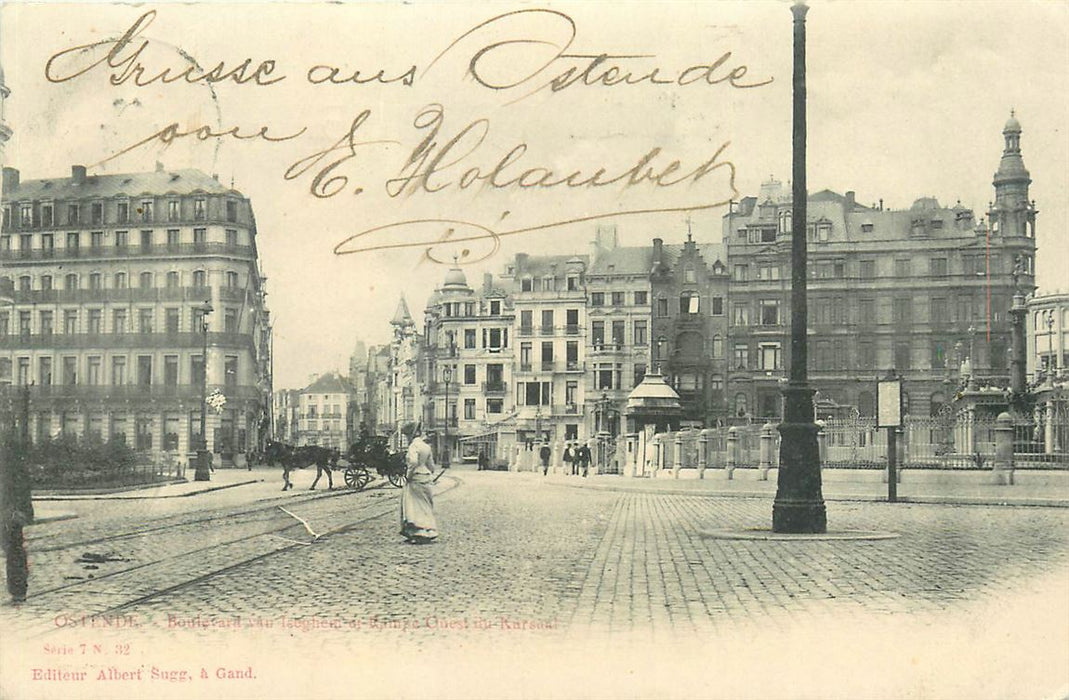 Grusse aus Ostende
von E. Holaubek
OSTENDE. Boulevard van Iseghem et Rampe Ouest du Kursaal
Série 7 N. 32
Editeur Albert Sugg, à Gand.